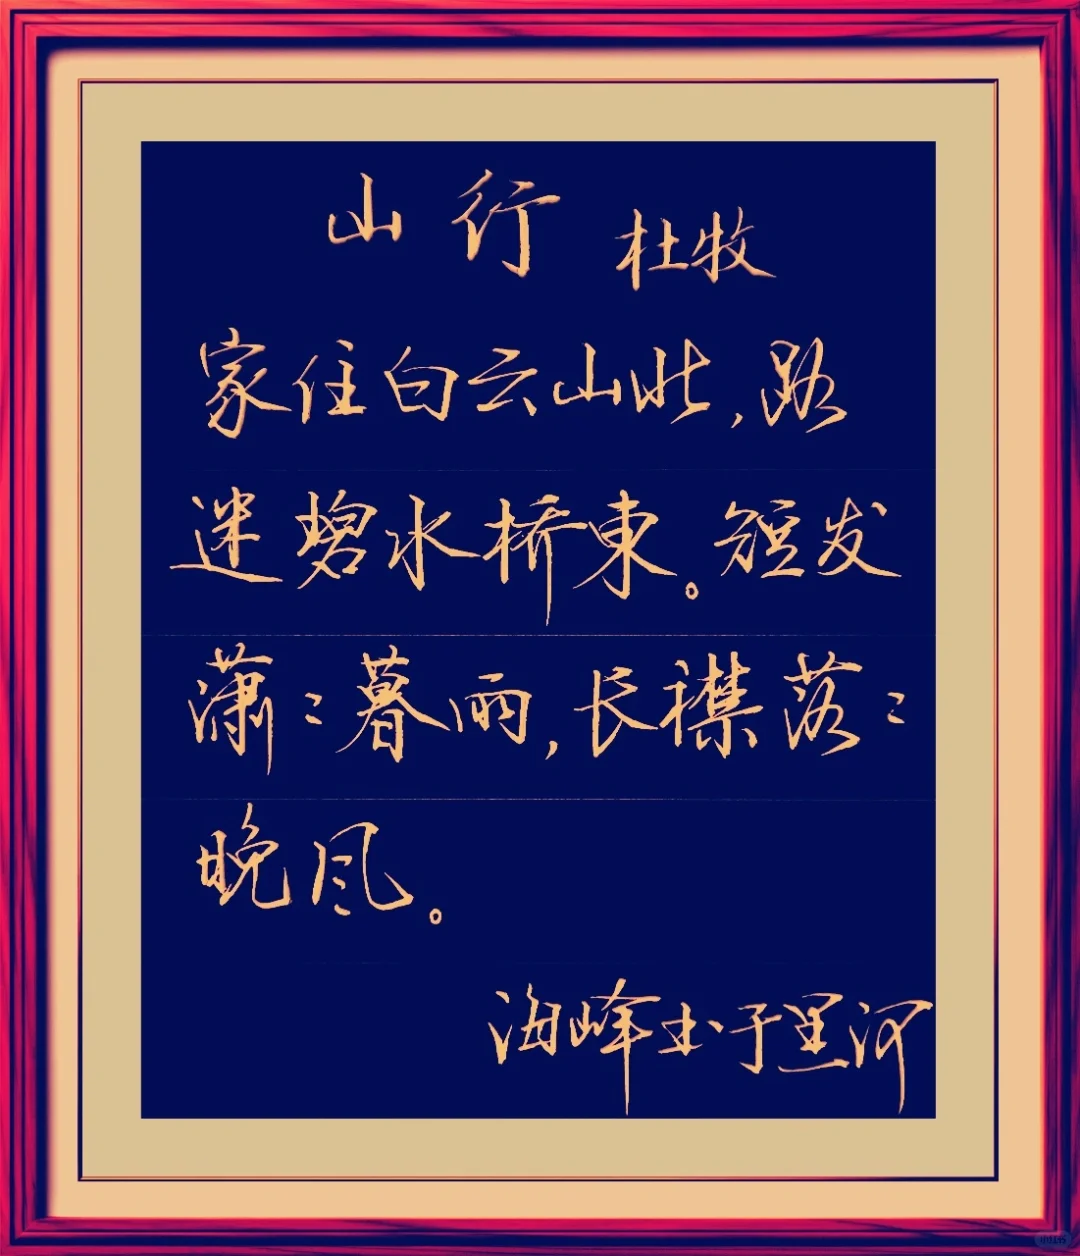 山行 杜牧
家住白云山北,路
迷碧水桥東。短发
潇:暮雨,长襟落:
晚风。
海峰书于里河